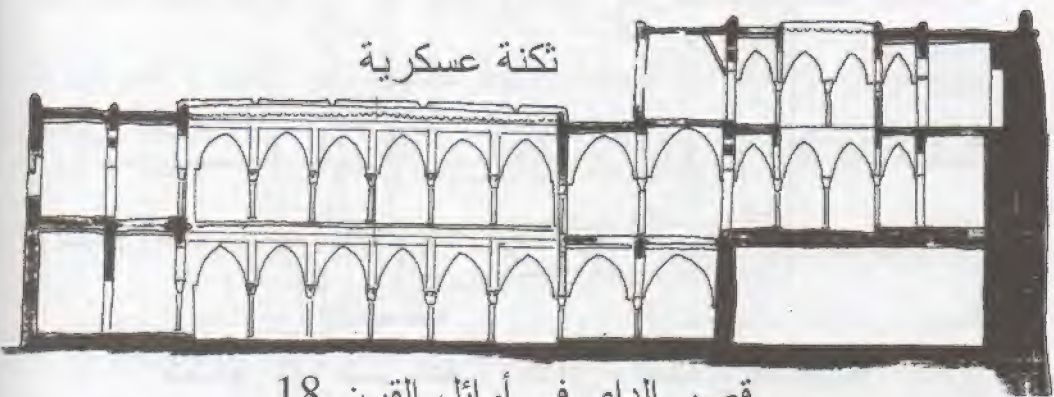 ثكنة عسكرية
قصر الداي في أوائل القرن 18